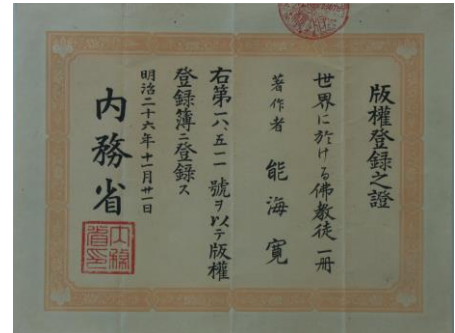 版權登錄之證
世界に於ける佛教徒一冊
著作者 能海寛
右第一八、五一一號ヲ以テ版權
登錄簿ニ登錄ス
明治二十六年十一月廿一日
内務省
内務省印